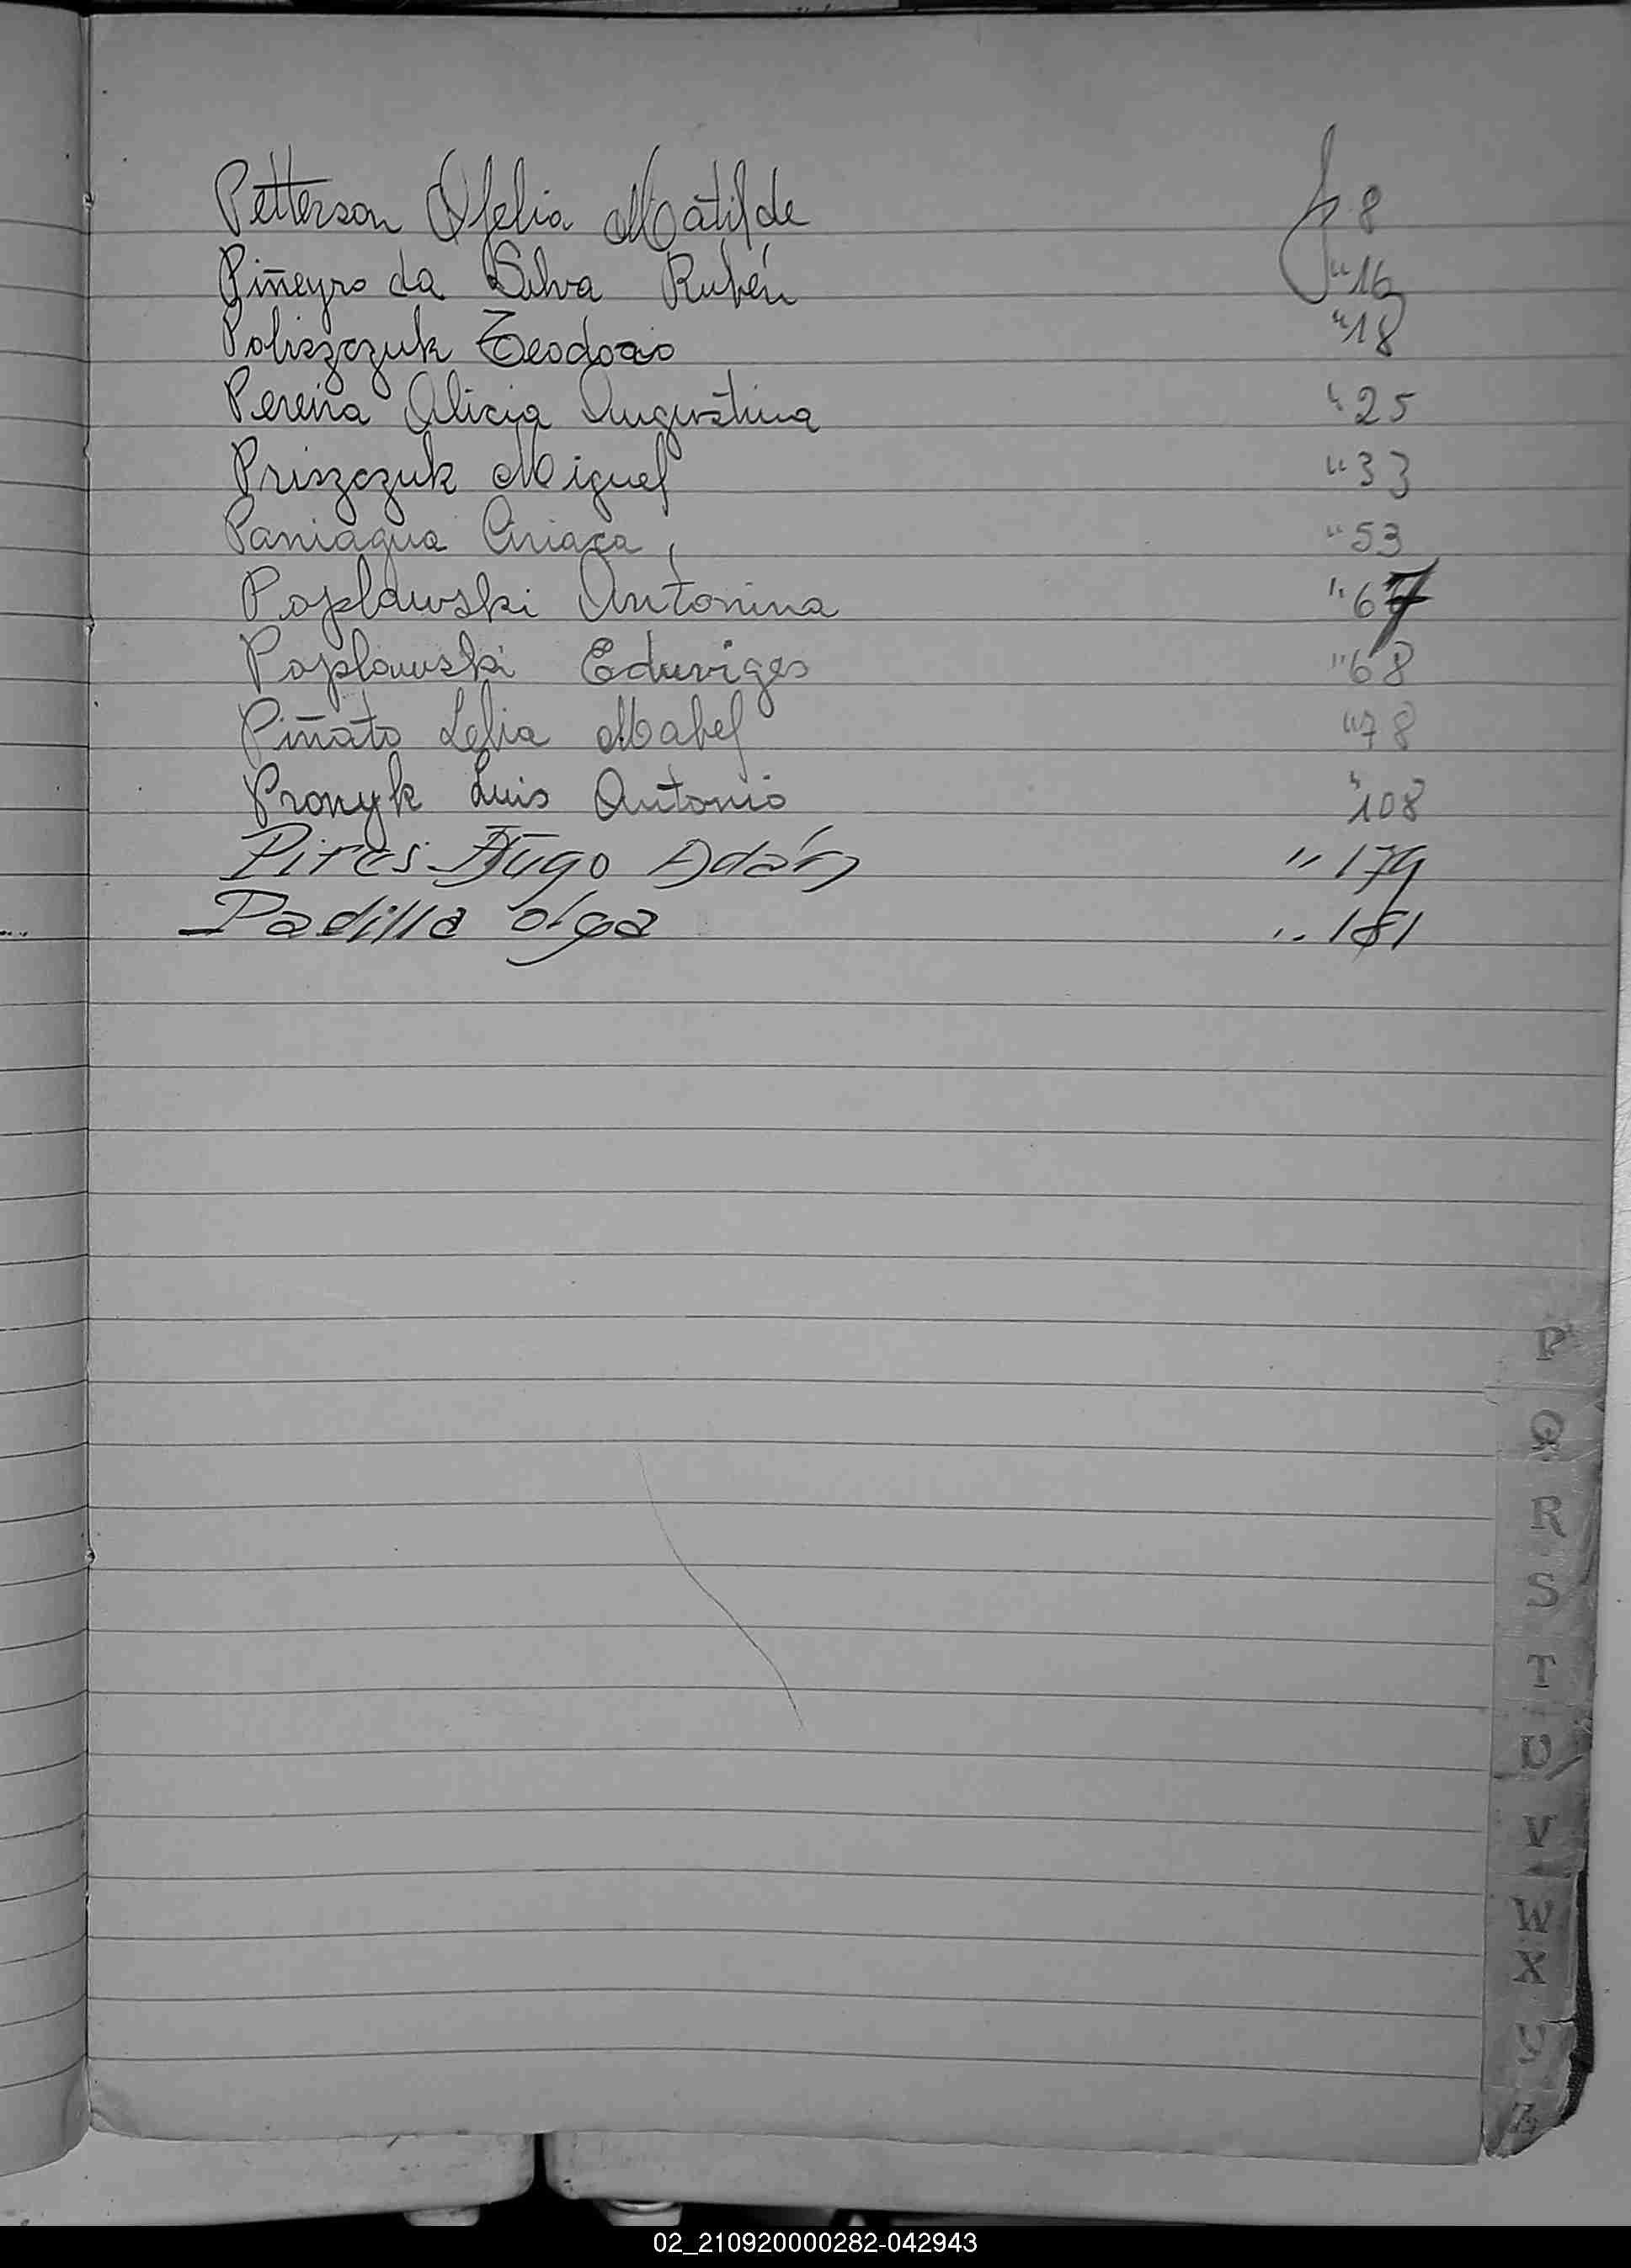 Petterson Ofelia Matilde 8
Piñeyro da Silva Rubén "16
Poliszczuk Teodoro "18
Pereira Alicia Augustina "25
Priszczuk Miguel "33
Paniagua Ciriaca "53
Poplawski Antonina "67
Poplawski Eduviges "68
Piñato Lelia Mabel "78
Pronyk Luis Antonio "108
Pires Hugo Adán "179
Padilla Olga "181
P
Q
R
S
T
U
V
W
X
Y
Z
02_210920000282-042943